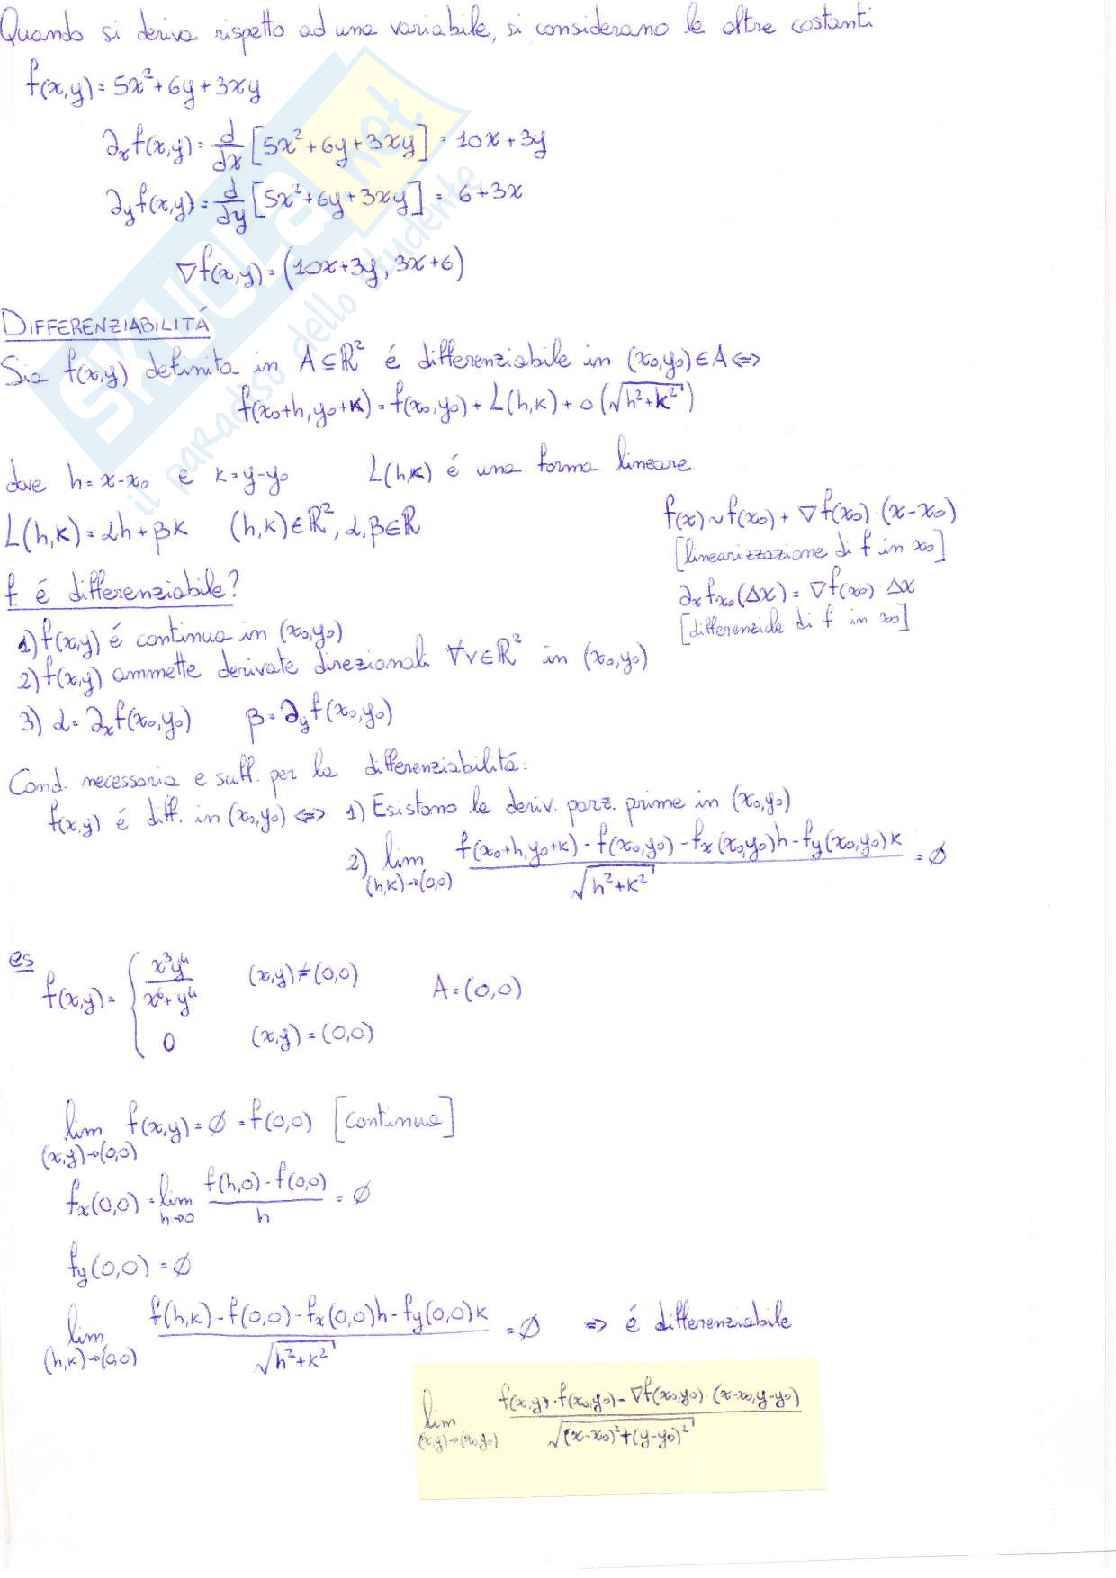 Quando si deriva rispetto ad una variabile, si considerano le altre costanti
f(x,y) = 5x² + 6y + 3xy
∂ₓf(x,y) = d/dx [5x² + 6y + 3xy] = 10x + 3y
∂ᵧf(x,y) = d/dy [5x² + 6y + 3xy] = 6 + 3x
∇f(x,y) = (10x+3y, 3x+6)
DIFFERENZIABILITÁ
Sia f(x,y) definita in A ⊆ ℝ² é differenziabile in (x₀,y₀) ∈ A ⇔
f(x₀+h, y₀+k) = f(x₀,y₀) + L(h,k) + o(√(h²+k²))
dove h = x-x₀ e k = y-y₀ L(h,k) é una forma lineare
L(h,k) = αh + βk (h,k) ∈ ℝ², α,β ∈ ℝ
f(x) ~ f(x₀) + ∇f(x₀) (x-x₀)
[linearizzazione di f in x₀]
∂ₓfx₀(Δx) = ∇f(x₀) Δx
[differenziale di f in x₀]
f é differenziabile?
1) f(x,y) é continua in (x₀,y₀)
2) f(x,y) ammette derivate direzionali ∀v∈ℝ² in (x₀,y₀)
3) α = ∂ₓf(x₀,y₀) β = ∂ᵧf(x₀,y₀)
Cond. necessaria e suff. per la differenziabilitá:
f(x,y) é diff. in (x₀,y₀) ⇔ 1) Esistono le deriv. parz. prime in (x₀,y₀)
2) lim (h,k)→(0,0) [f(x₀+h, y₀+k) - f(x₀,y₀) - fₓ(x₀,y₀)h - fᵧ(x₀,y₀)k] / √(h²+k²) = ∅
es
f(x,y) = { x³y⁴/(x⁶+y⁴) (x,y) ≠ (0,0) A = (0,0)
0 (x,y) = (0,0)
lim (x,y)→(0,0) f(x,y) = ∅ = f(0,0) [continua]
fₓ(0,0) = lim h→0 [f(h,0) - f(0,0)] / h = ∅
fᵧ(0,0) = ∅
lim (h,k)→(0,0) [f(h,k) - f(0,0) - fₓ(0,0)h - fᵧ(0,0)k] / √(h²+k²) = ∅ ⇒ é differenziabile
lim (x,y)→(x₀,y₀) [f(x,y) - f(x₀,y₀) - ∇f(x₀,y₀) · (x-x₀, y-y₀)] / √((x-x₀)²+(y-y₀)²)
SKUOLA.net
il paradiso dello studente